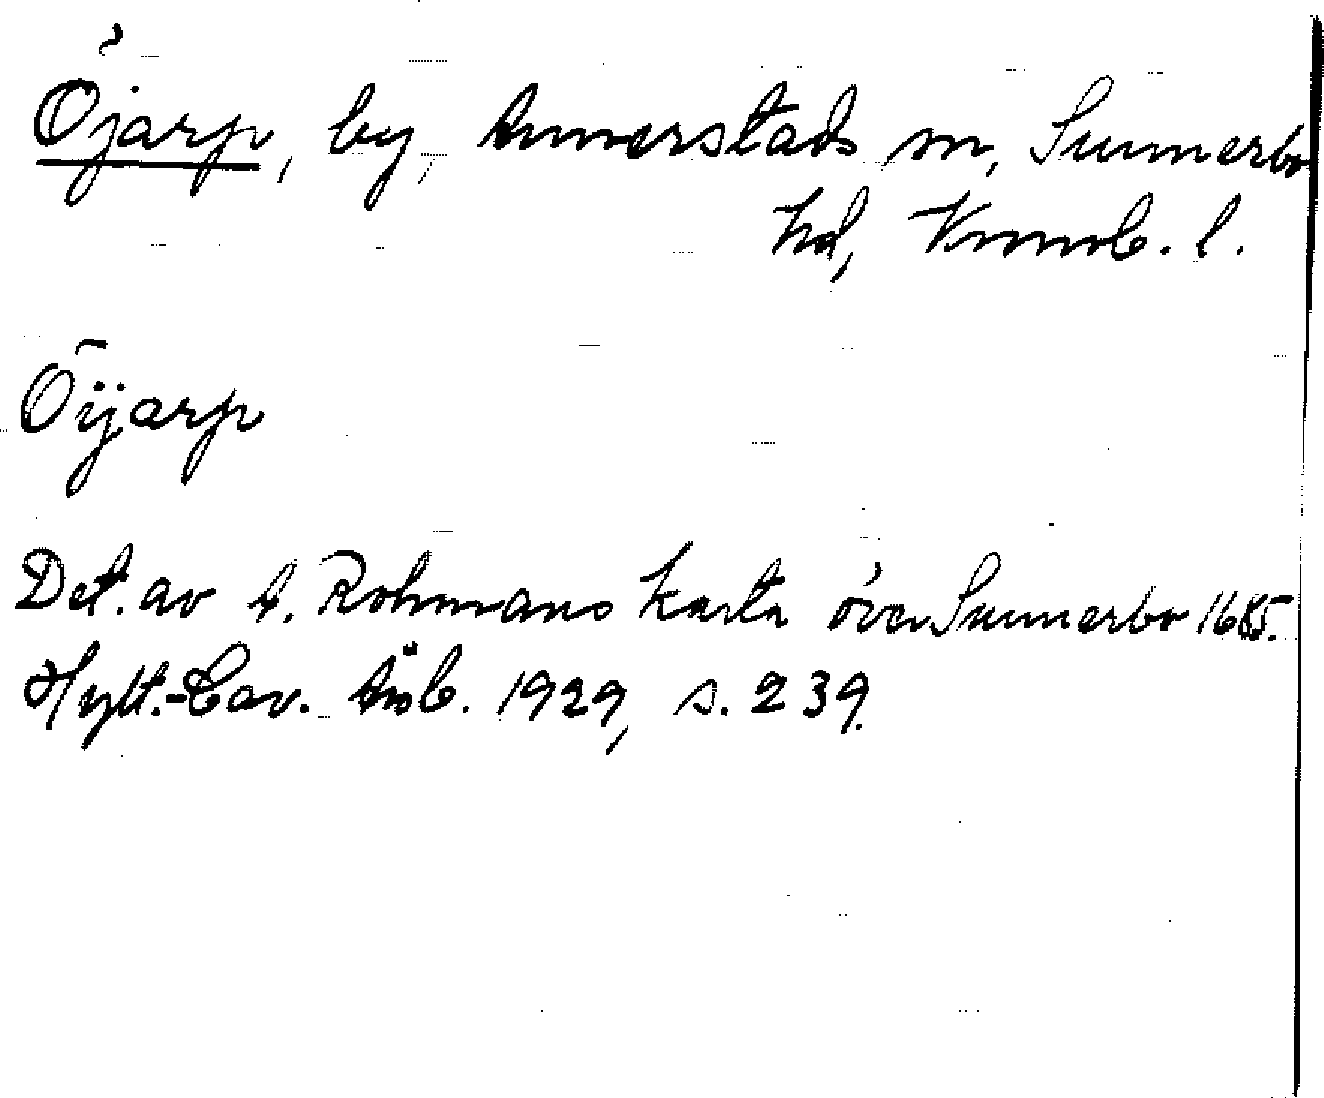 Öjarp, by, Annerstads sn, Sunnerbo
hd, Kronob. l.
Öijarp
Det. av A. Rohmans karta över Sunnerbo 1685.
Hylt.-Cav. Årsb. 1929, s. 239.